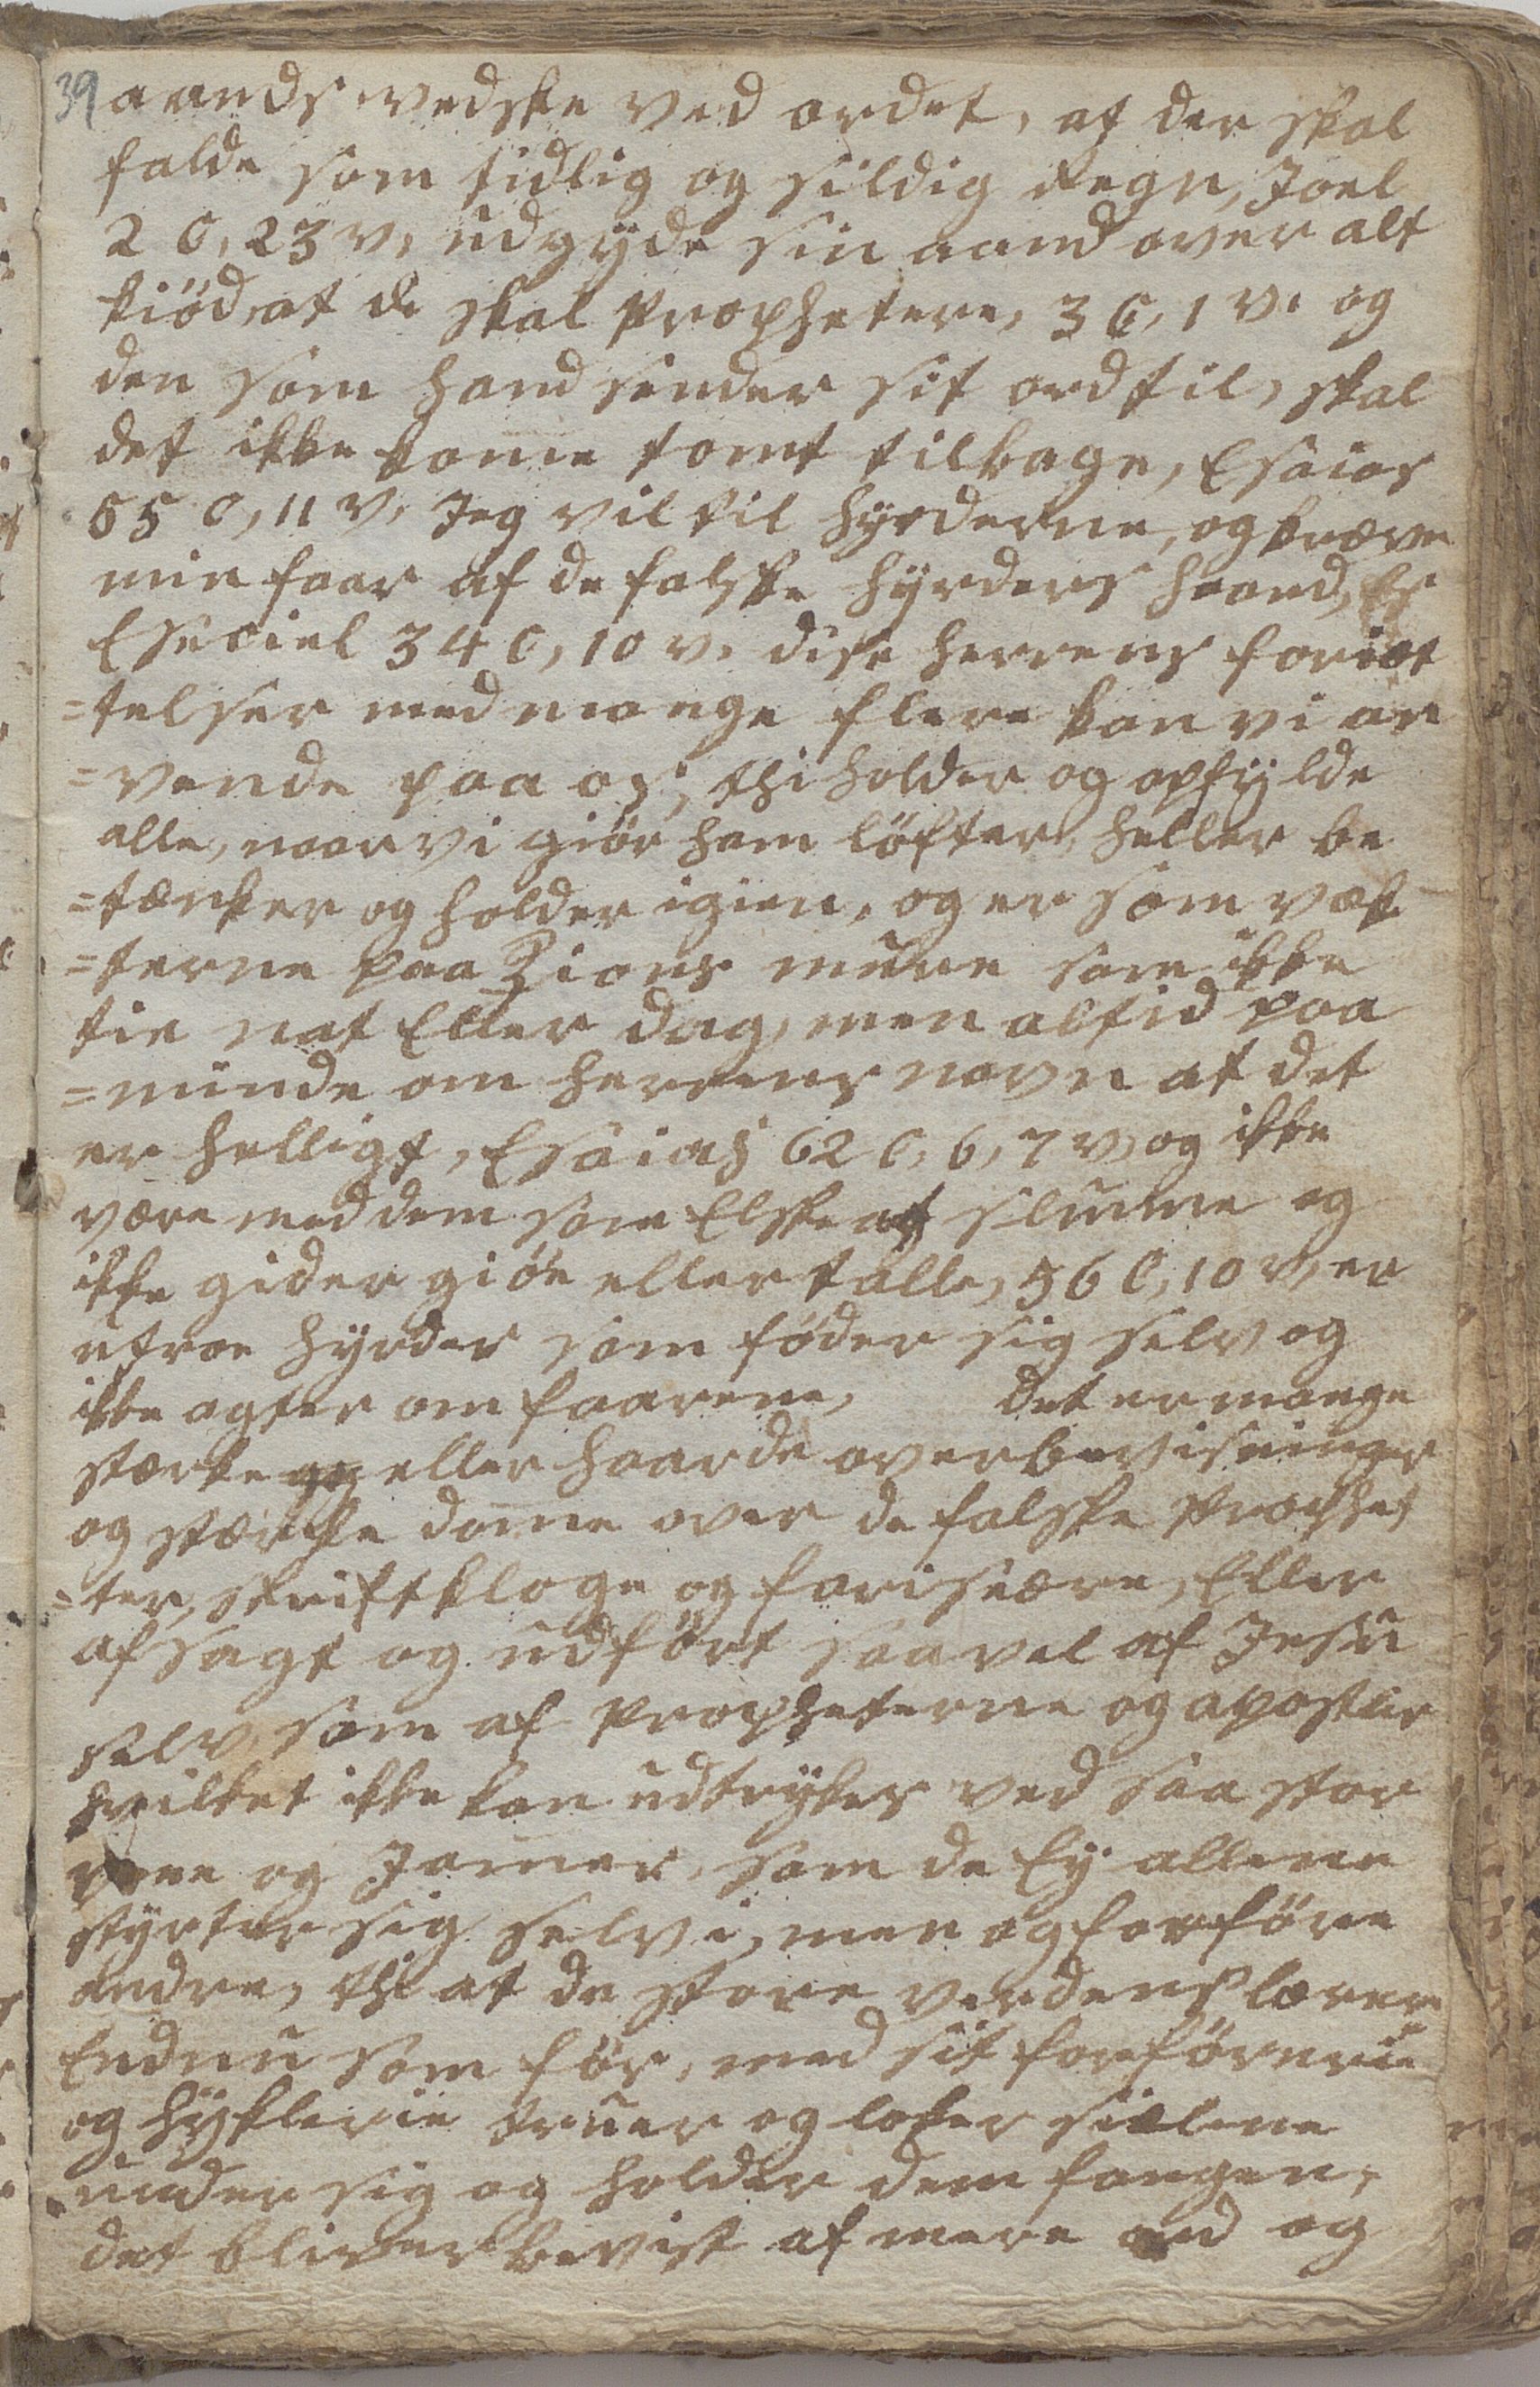 39 aands vedske ved ordet, at der skal
falde som tidlig og sildig Regn, Joel
2 C, 23 v, udgyde sin aand over alt
kiöd, at de skal Prophetere, 3 C, 1 v. og
den som hand sender sit ord til, skal
det ikke kome tomt tilbage, Esaias
55 C, 11 v, Jeg vil til hyrderne, og kræve
min faar af de falske hyrders haand, Es
Eseciel 34 C, 10 v. dise herrens foriæt
=telser med mange flere kan vi an
=vende paa os; thi holder og opfylde
alle, naar vi giör ham löfter, heller be
=tænker og holder igien, og er som væk
=terne paa Zions mure som ikke
tie nat Eller dag, men altid paa
=minde om herrens navn at det
er helligt, Esaias 62 C, 6, 7 v, og ikke
være med dem som Elske at slume og
ikke gider giöe eller talle, 56 C, 10 v, er
utroe hyrder som föder sig selv og
ikke agter om faarene, det er mange
stærke eller haarde overbevisninger
og stærke dome over de falske Prophe
=ter, skriftkloge og fariseære, Eller
afsagt og udfört saavel af Jesu
selv, som af Propheterne og apostler
hvilket ikke kan udtrykes ved saa stor
vee og Jamer, som de Ey allene
styrter sig selv i, men og forföre
andre, thi at de store verdens lærere
Endnu som för, med sit forförerie
og hyklerie truer og loker siælene
under sig og holder dem fangen,
det bliver bevist af mere ond og